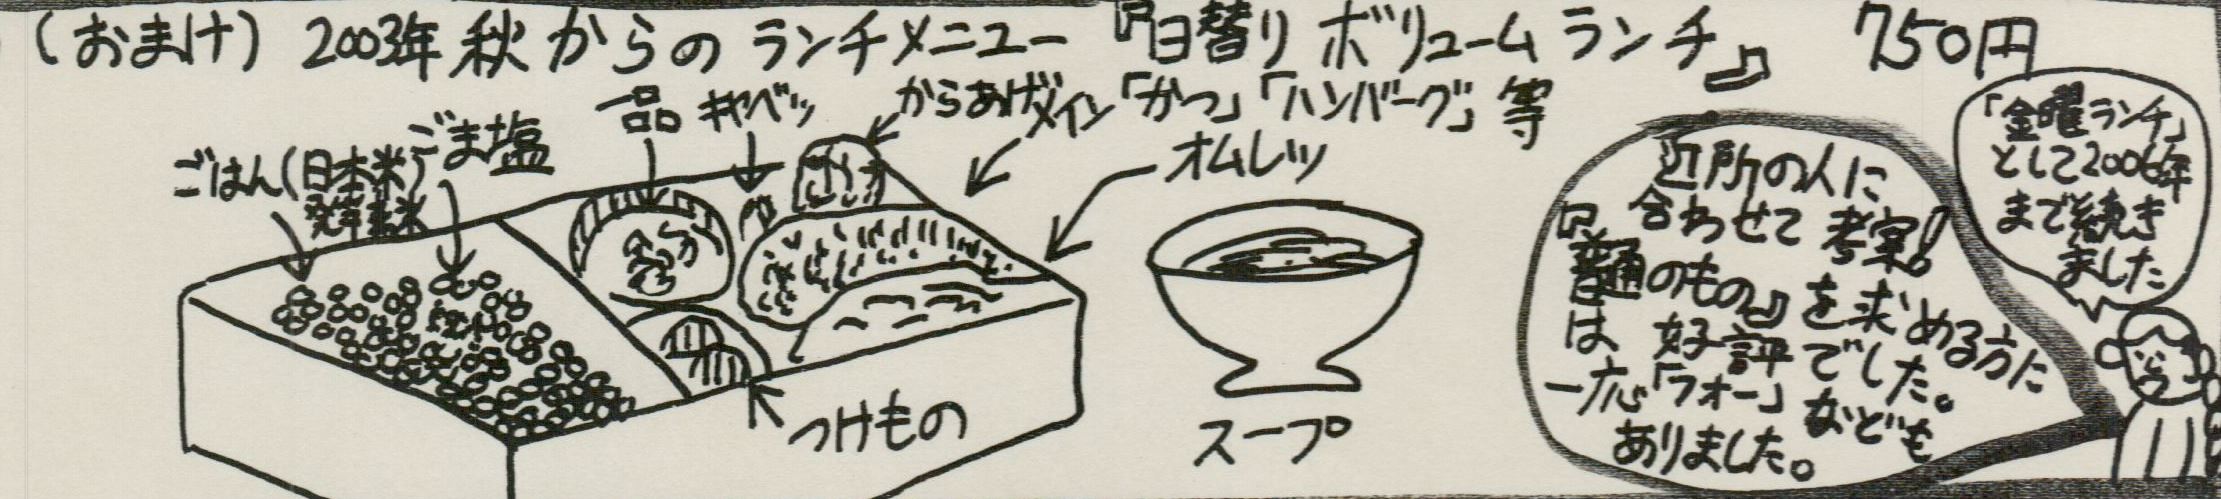 (おまけ) 2003年秋からのランチメニュー『日替りボリュームランチ』 750円
ごはん(日本米)
発芽玄米
ごま塩
一品
キャベツ
からあげ
メイン「かつ」「ハンバーグ」等
オムレツ
つけもの
スープ
近所の人に
合わせて考案!
『普通のもの』を求める方に
は好評でした。
一応「フォー」なども
ありました。
「金曜ランチ」
として2006年
まで続き
ました